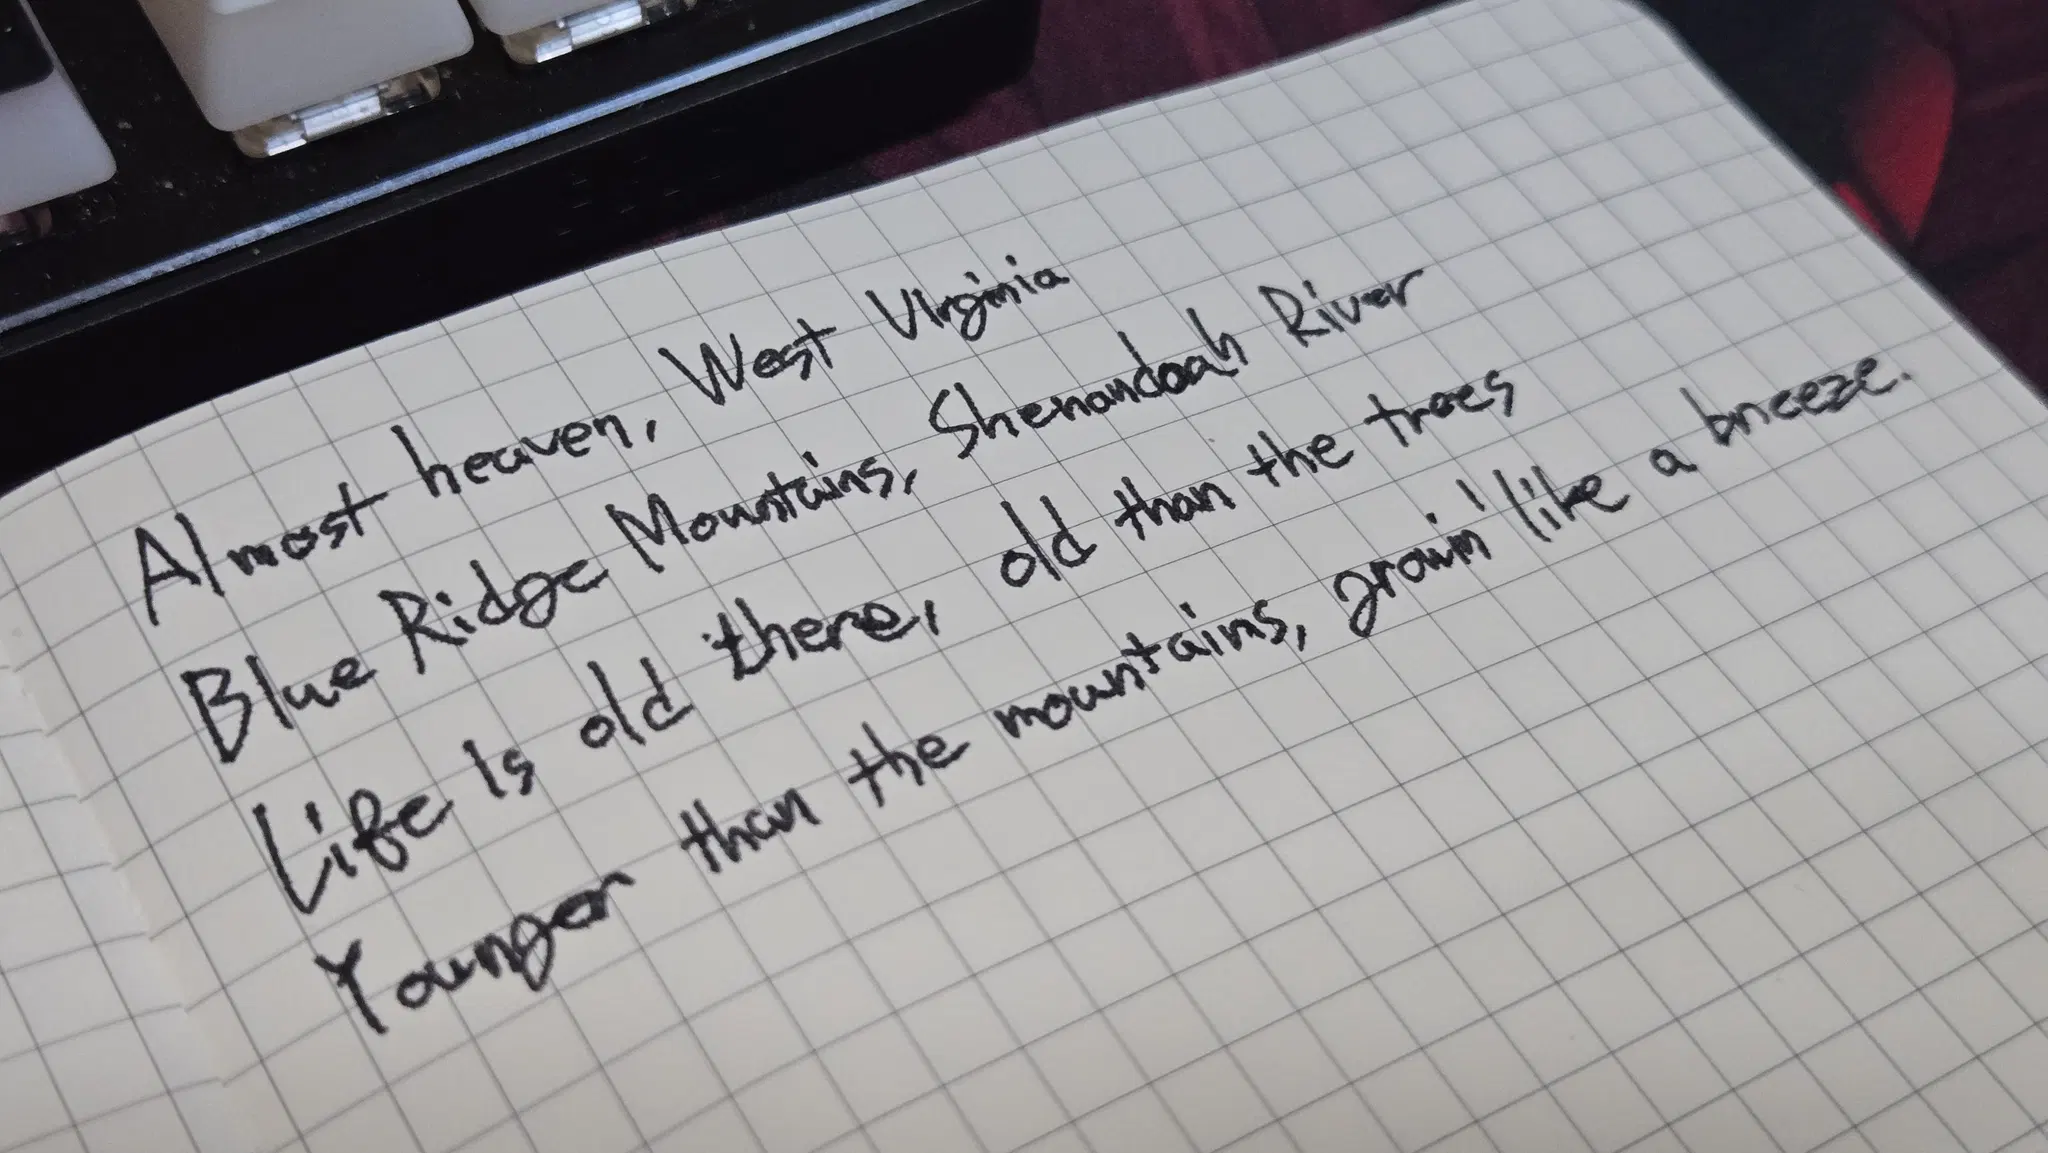 Almost heaven, West Virginia
Blue Ridge Mountains, Shenandoah River
Life is old there, old than the trees
Younger than the mountains, growin' like a breeze.